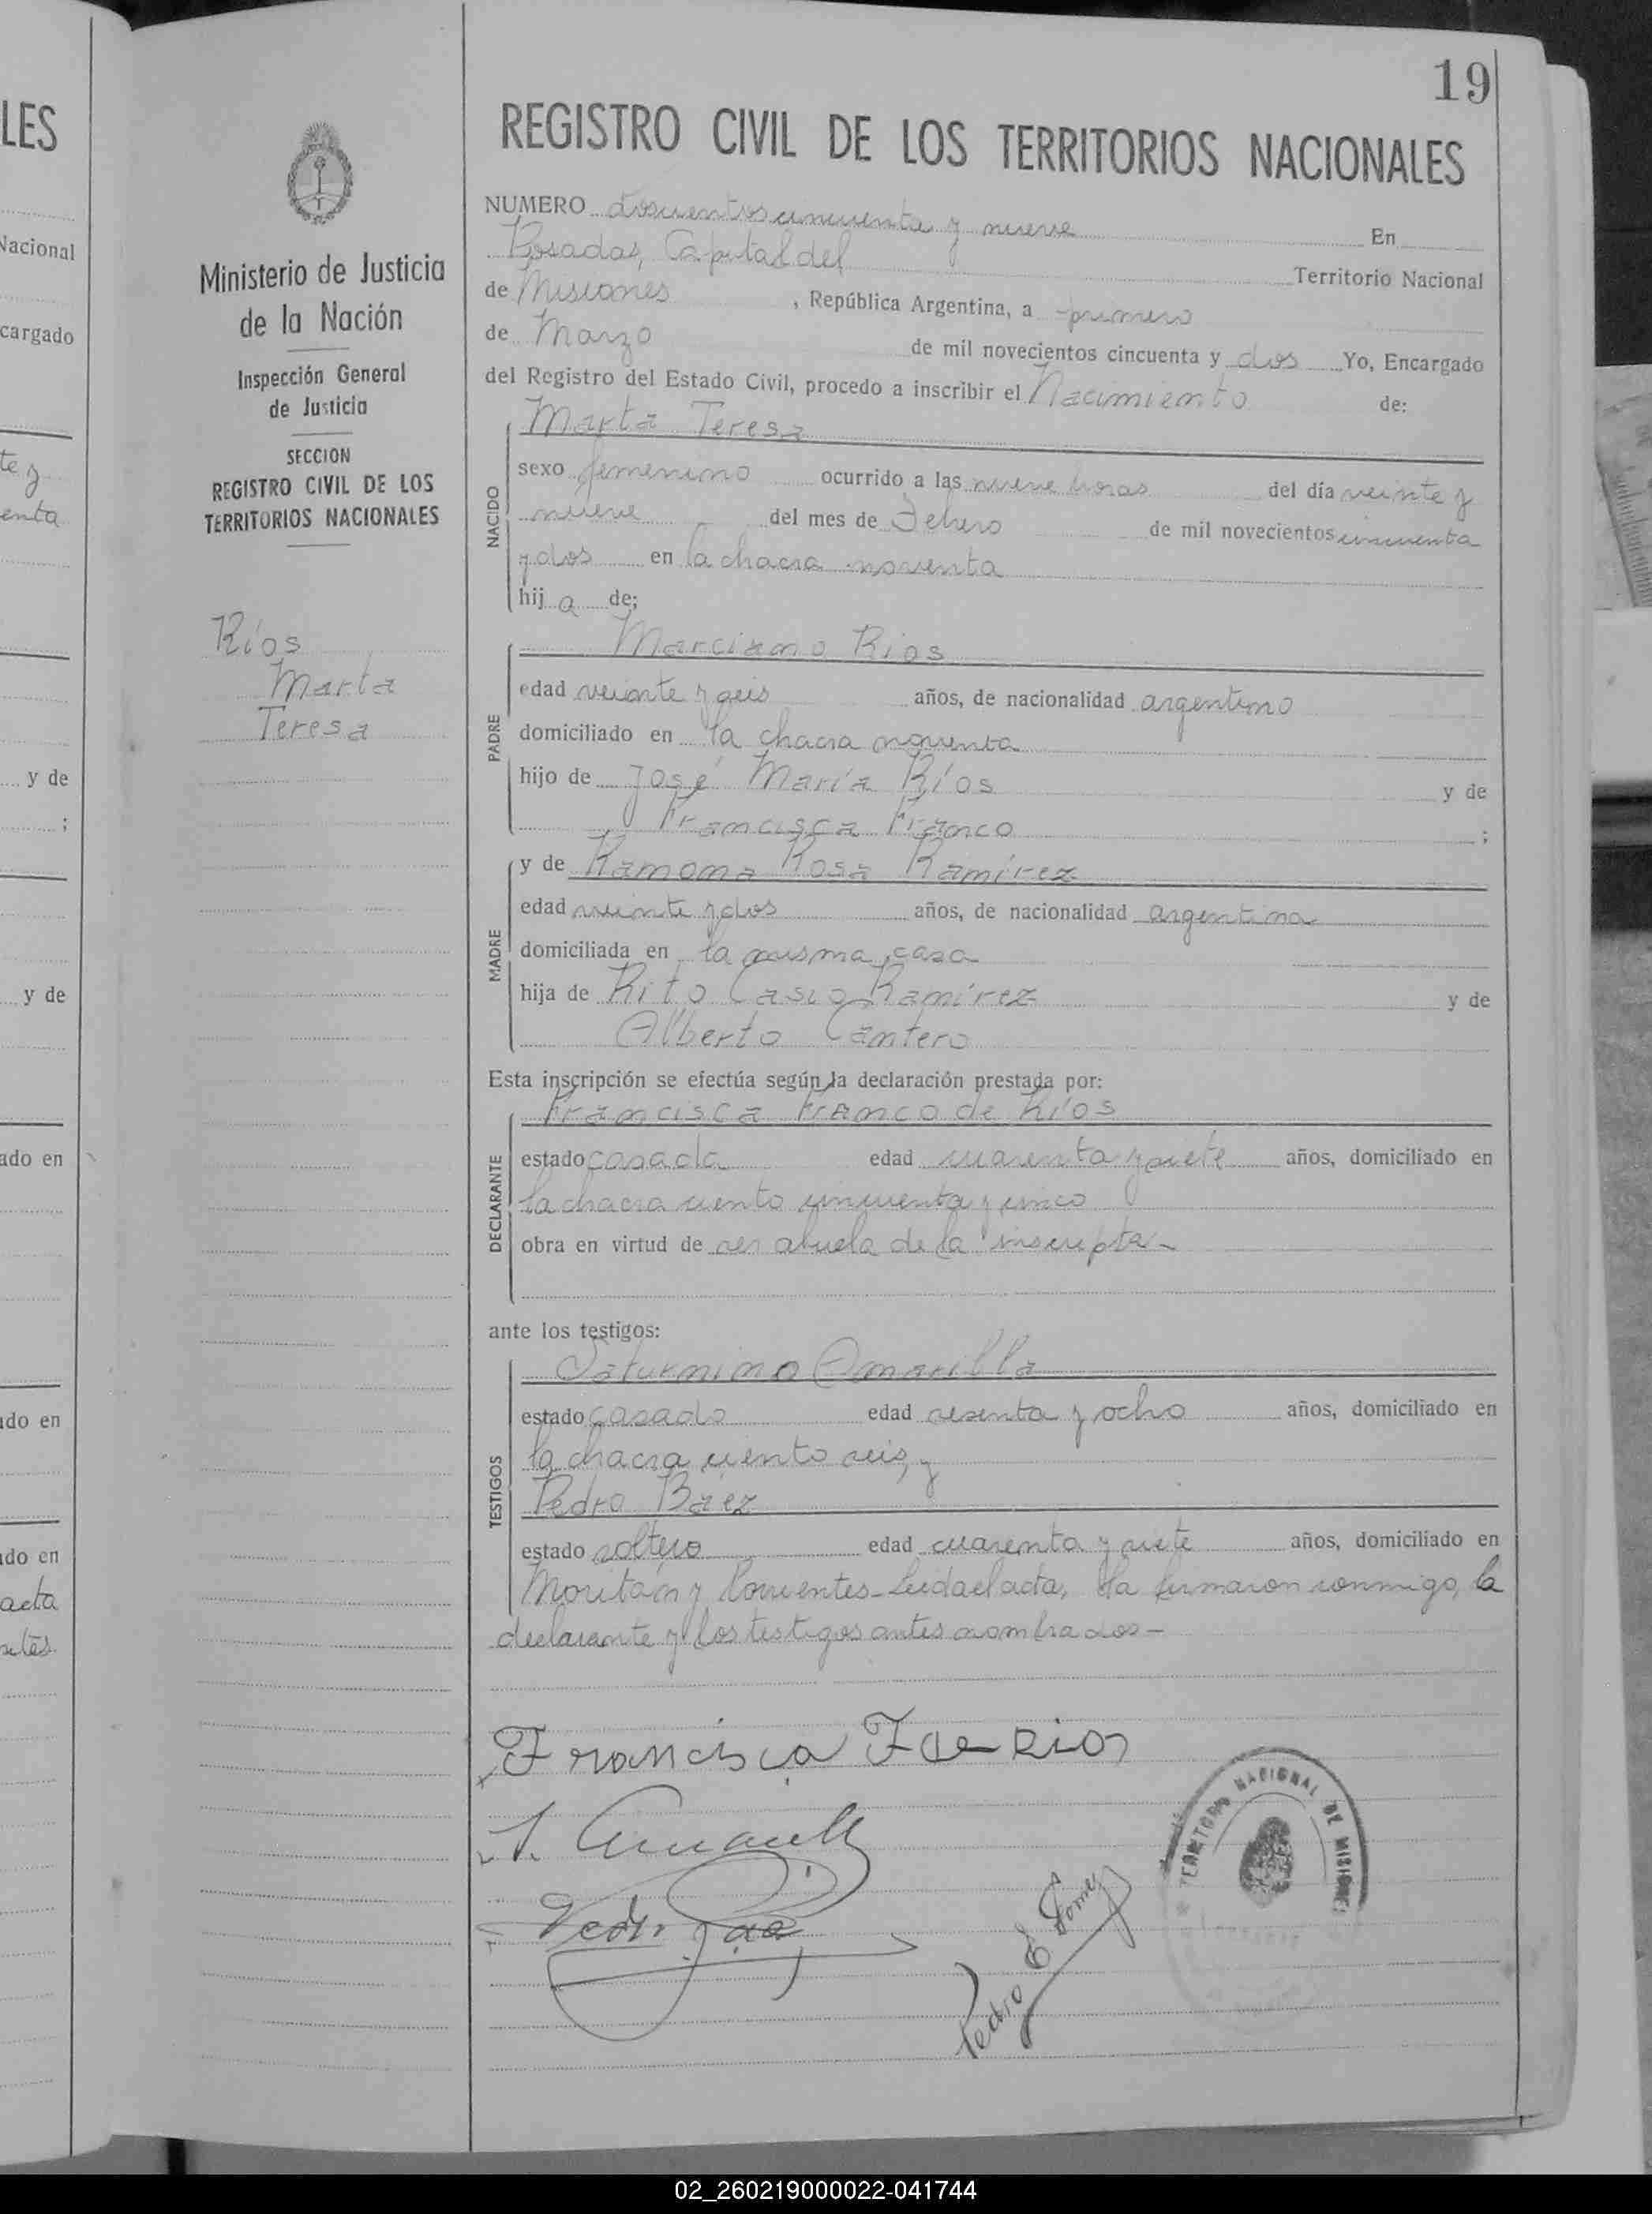 19
LES
REGISTRO CIVIL DE LOS TERRITORIOS NACIONALES
Nacional
cargado
te y
enta
y de
;
y de
ado en
ado en
ado en
acta
Ministerio de Justicia
de la Nación
Inspección General
de Justicia
SECCION
REGISTRO CIVIL DE LOS
TERRITORIOS NACIONALES
Ríos
Marta
Teresa
NUMERO doscientos cincuenta y nueve En
Posadas, Capital del Territorio Nacional
de Misiones, República Argentina, a primero
de Marzo de mil novecientos cincuenta y dos Yo, Encargado
del Registro del Estado Civil, procedo a inscribir el Nacimiento de:
Marta Teresa
NACIDO
sexo femenino ocurrido a las nueve horas del día veinte y
nueve del mes de Febrero de mil novecientos cincuenta
y dos en la chacra noventa
hija de;
PADRE
Marciano Rios
edad veinte y seis años, de nacionalidad argentino
domiciliado en la chacra noventa
hijo de José María Ríos y de
Francisca Franco ;
MADRE
y de Ramona Rosa Ramírez
edad veinte y dos años, de nacionalidad argentina
domiciliada en la misma casa
hija de Rito Casio Ramírez y de
Alberto Cantero
Esta inscripción se efectúa según la declaración prestada por:
DECLARANTE
Francisca Franco de Ríos
estado casada edad cuarenta y siete años, domiciliado en
la chacra ciento cincuenta y cinco
obra en virtud de ser abuela de la inscripta-
ante los testigos:
TESTIGOS
Saturnino Amarilla
estado casado edad sesenta y ocho años, domiciliado en
la chacra ciento seis, y
Pedro Báez
estado soltero edad cuarenta y siete años, domiciliado en
Moritán y Corrientes-Leida el acta, la firmaron conmigo, la
declarante y los testigos antes nombrados-
Francisca F de Rios
Pedro E Gomez
TERRITORIO NACIONAL DE MISIONES
02_260219000022-041744